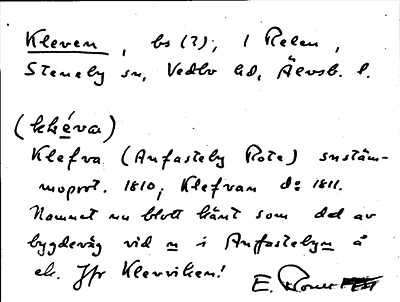 Kleven, bs (?), i Relen,
Steneby sn, Vedbo hd, Älvsb. l.
(khéva)
Klefva (Anfasteby Rote) snstäm-
moprot. 1810; Klefvan d:o 1811.
Namnet nu blott känt som del av
bygdeväg vid n i Anfastebyn å
ek. Jfr Klevviken!
E.